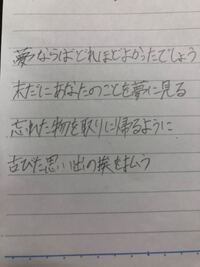 夢ならばどれほどよかったでしょう
未だにあなたのことを夢に見る
忘れた物を取りに帰るように
古びた思い出の埃を払う